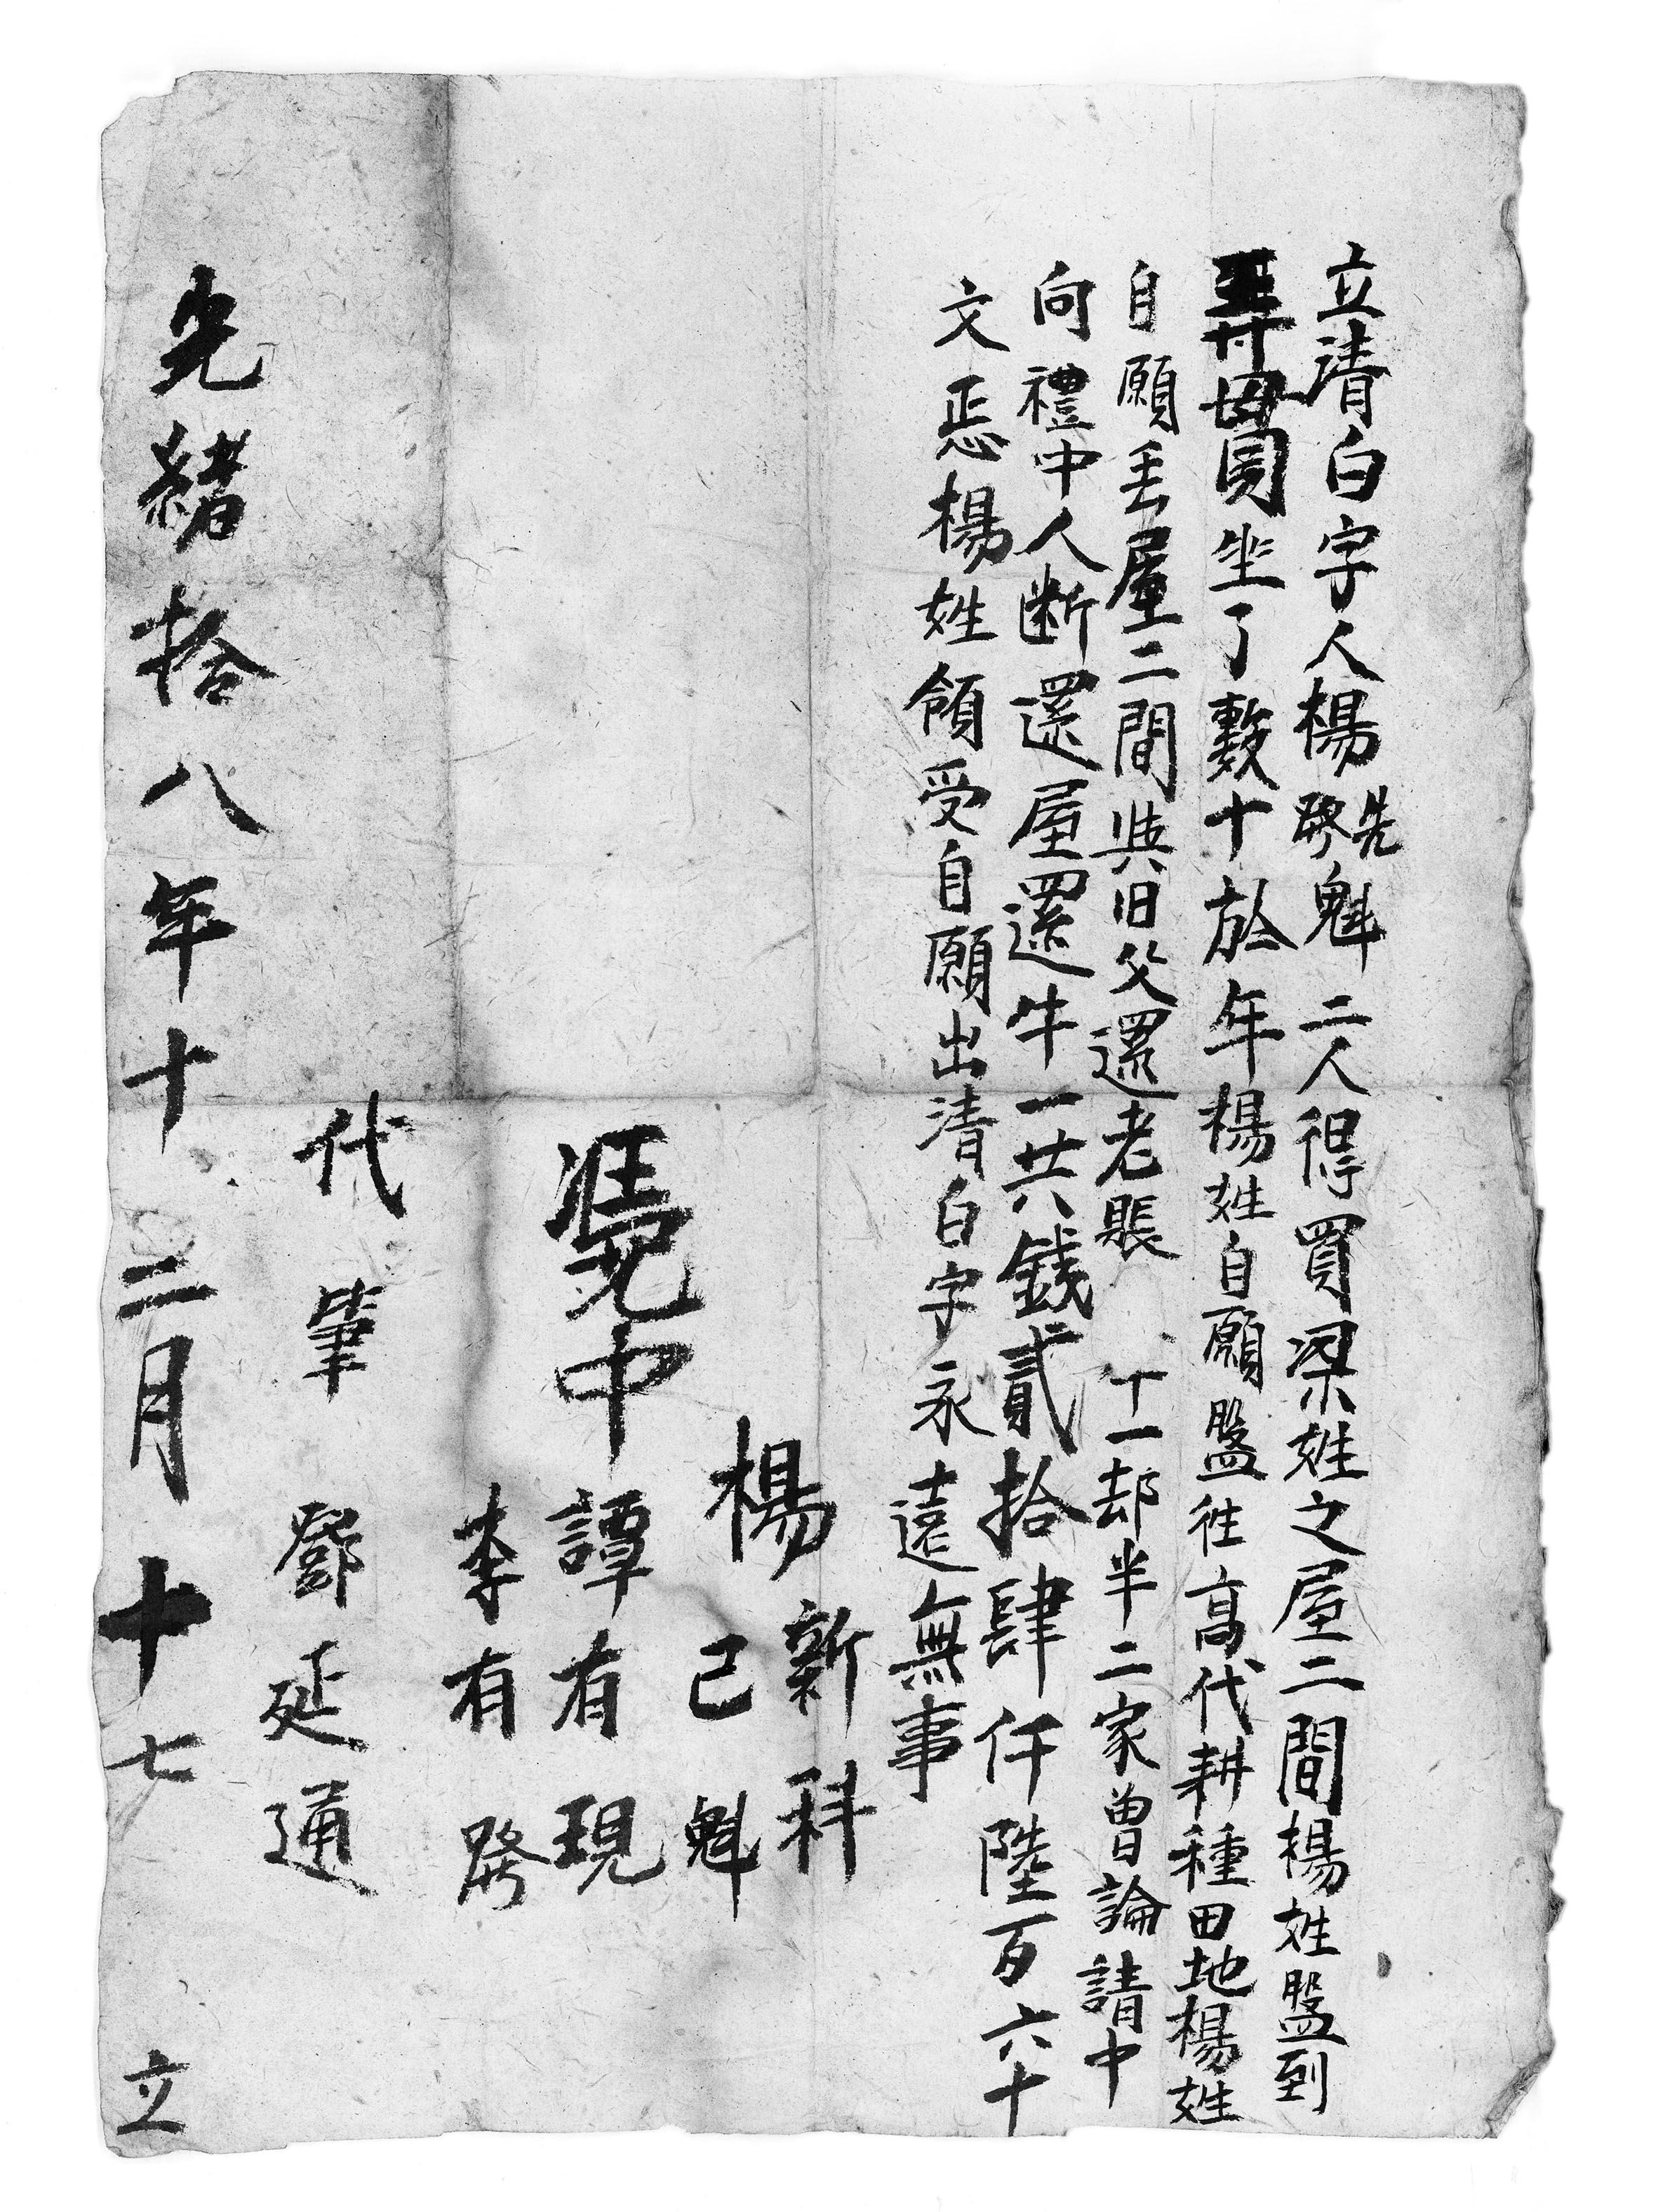 立清白字人楊先勝魁二人得買梁姓之屋二間楊姓盤到
坐了數十於年楊姓自願盤往高代耕種田地楊姓
自願丢屋二間與旧父還老賬 丁一却半二家曾論請中
向禮中人断還屋還牛一共錢貳拾肆仟陸百六十
文㤙楊姓領受自願出清白字永遠無事
楊新科
己魁
凴中譚有現
李有勝
代筆鄧延通
光緒拾八年十二月十七 立